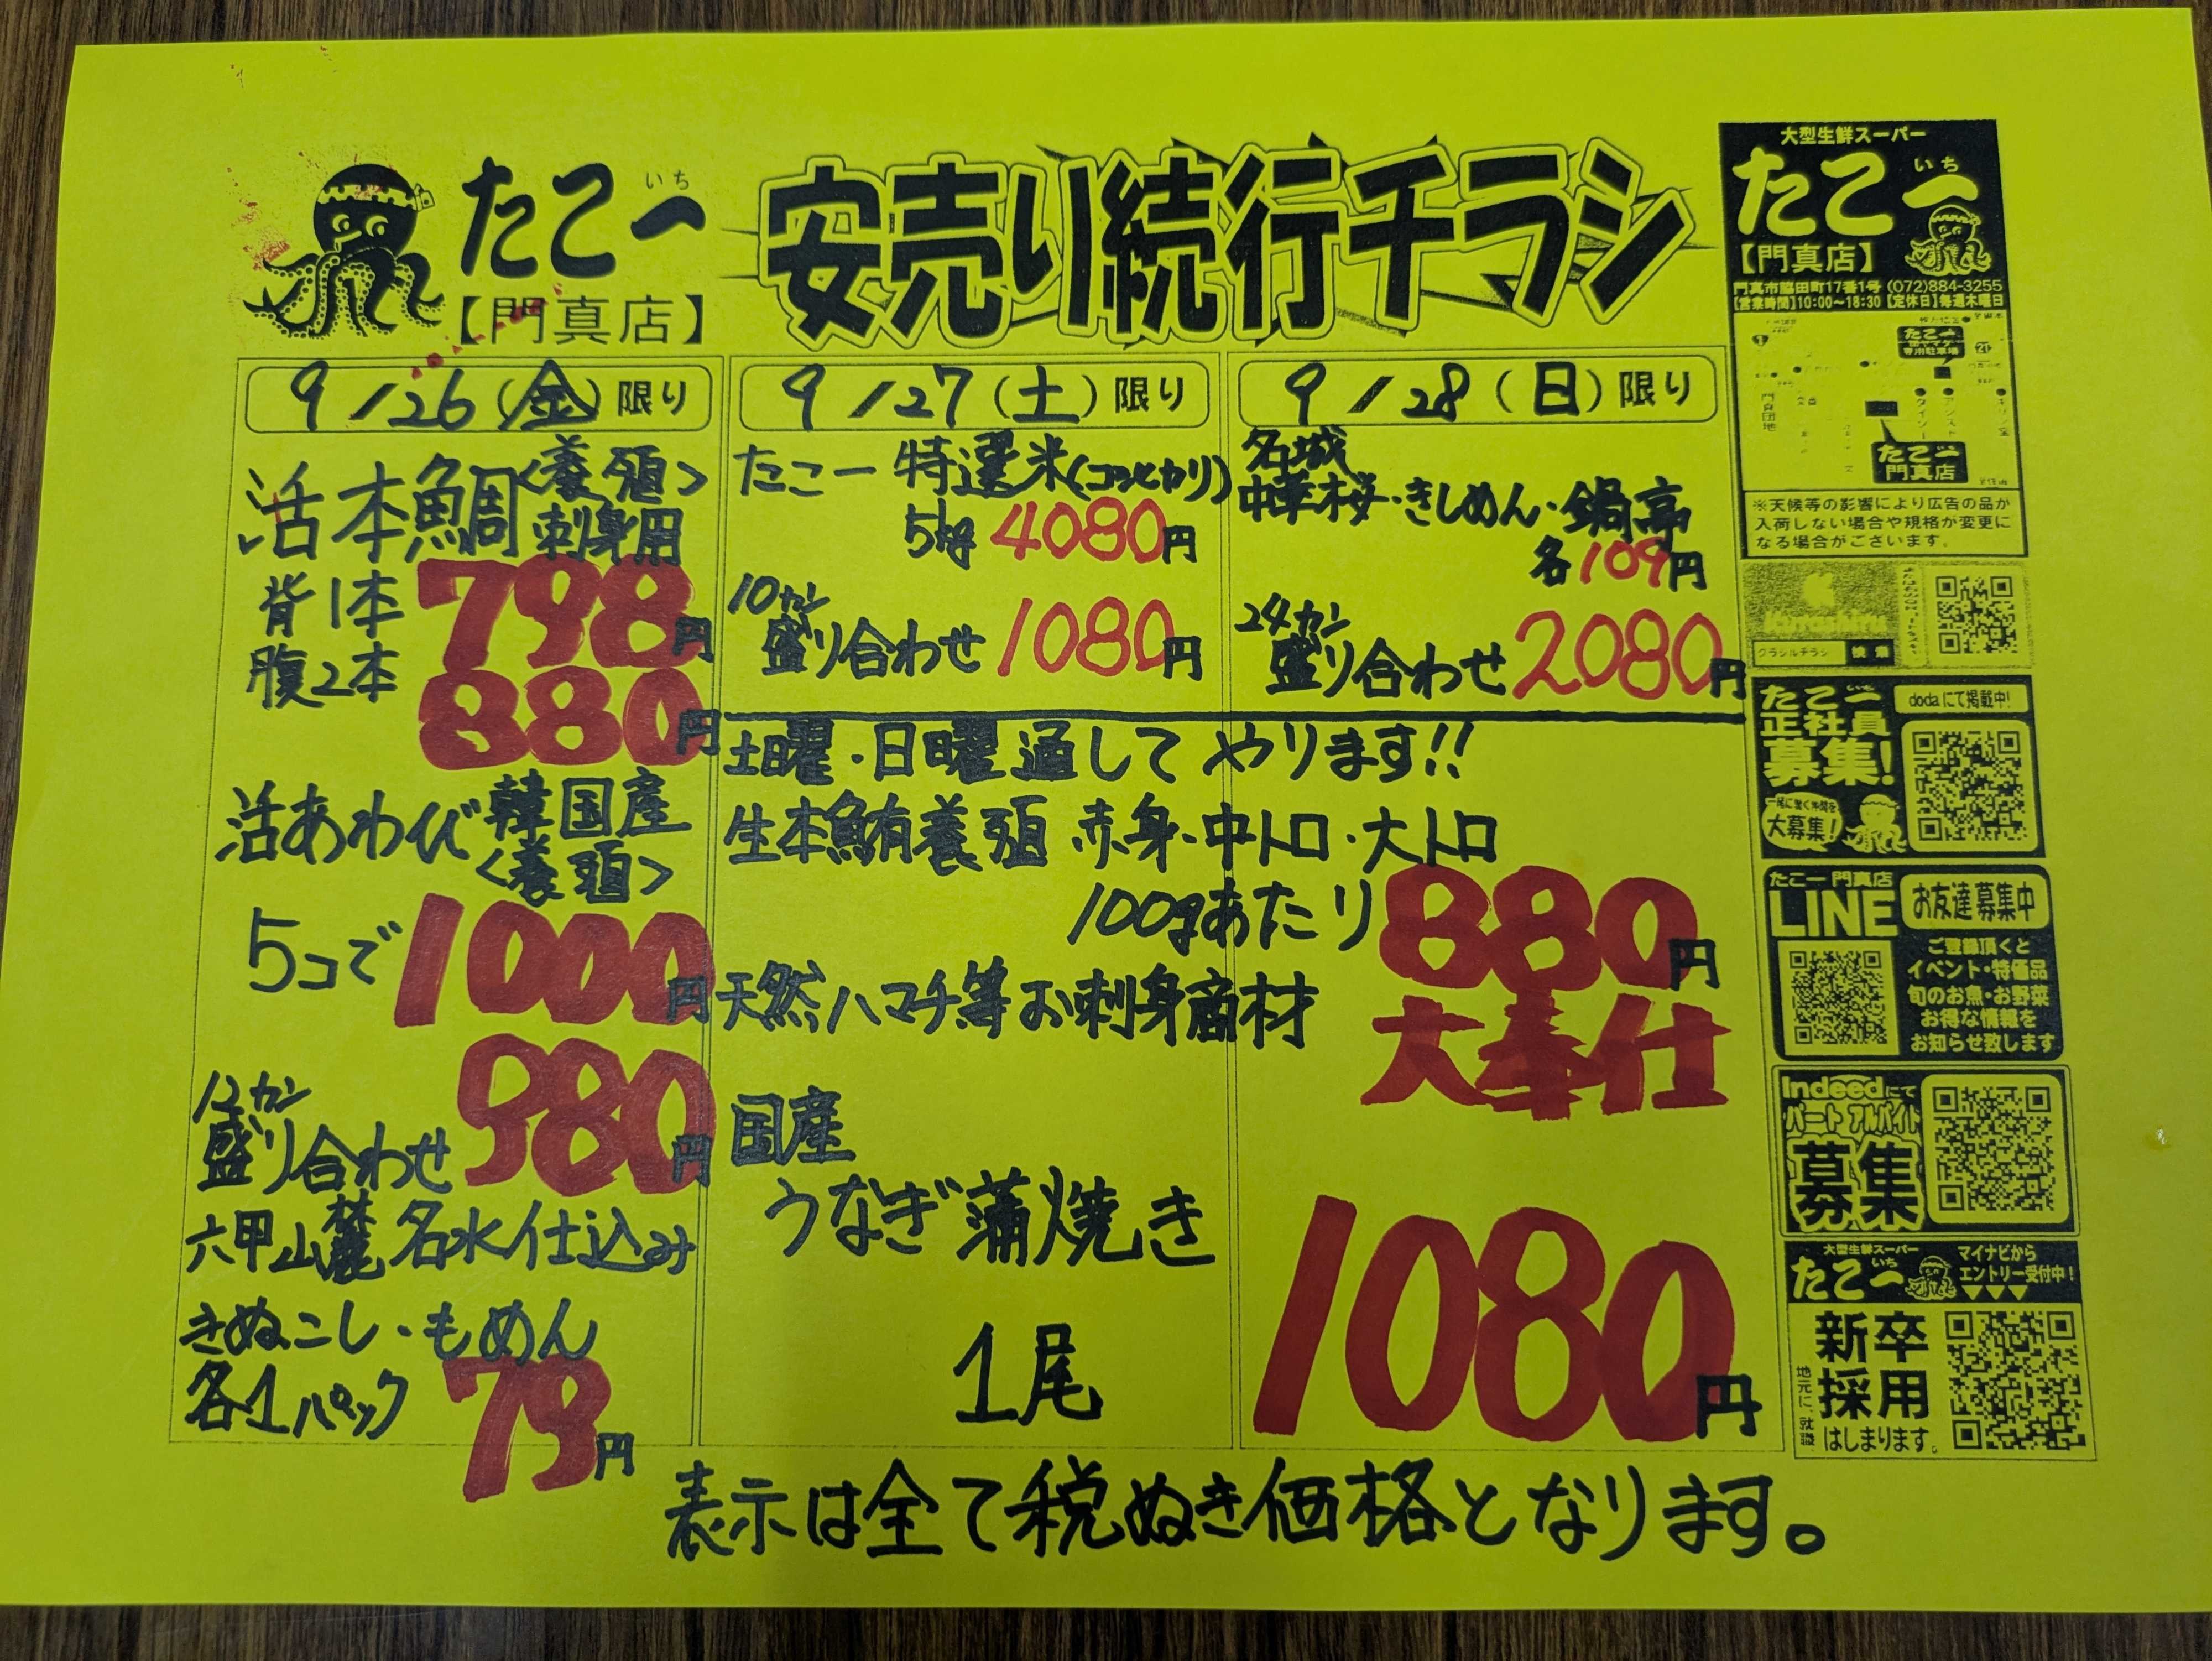 たこ一
いち
【門真店】
安売り続行チラシ
9/26(金)限り
活本鯛<養殖>
刺身用
背1本 798円
腹2本 880円
活あわび 韓国産
<養殖>
5コで 1000円
12カン
盛り合わせ 980円
六甲山麓名水仕込み
きぬこし・もめん
各1パック 79円
9/27(土)限り
たこ一 特選米(コシヒカリ)
5kg 4080円
10カン
盛り合わせ 1080円
9/28(日)限り
名城
中華桜・きしめん・鍋亭
各109円
24カン
盛り合わせ 2080円
土曜・日曜通してやります!!
生本鮪養殖 赤身・中トロ・大トロ
100gあたり 880円
天然ハマチ等お刺身商材
大奉仕
国産
うなぎ蒲焼き
1尾 1080円
表示は全て税ぬき価格となります。
大型生鮮スーパー
たこ一
いち
【門真店】
門真市脇田町17番1号 (072)884-3255
【営業時間】10:00〜18:30【定休日】毎週木曜日
たこ一
専用駐車場
たこ一
門真店
※天候等の影響により広告の品が
入荷しない場合や規格が変更に
なる場合がございます。
クラシルチラシ 検索
たこ一
正社員
募集!
dodaにて掲載中!
一緒に働く仲間を
大募集!
たこ一 門真店
LINE
お友達募集中
ご登録頂くと
イベント・特価品
旬のお魚・お野菜
お得な情報を
お知らせ致します
Indeedにて
パート アルバイト
募集
大型生鮮スーパー
たこ一
いち
マイナビから
エントリー受付中!
新卒
採用
はしまります。
地元に、就職